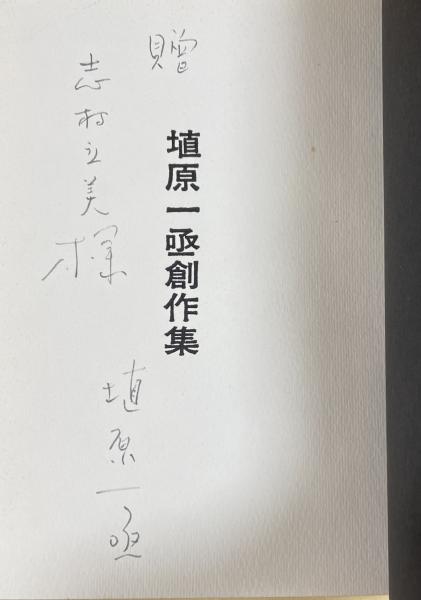 贈
埴原一亟創作集
志村立美様
埴原一亟